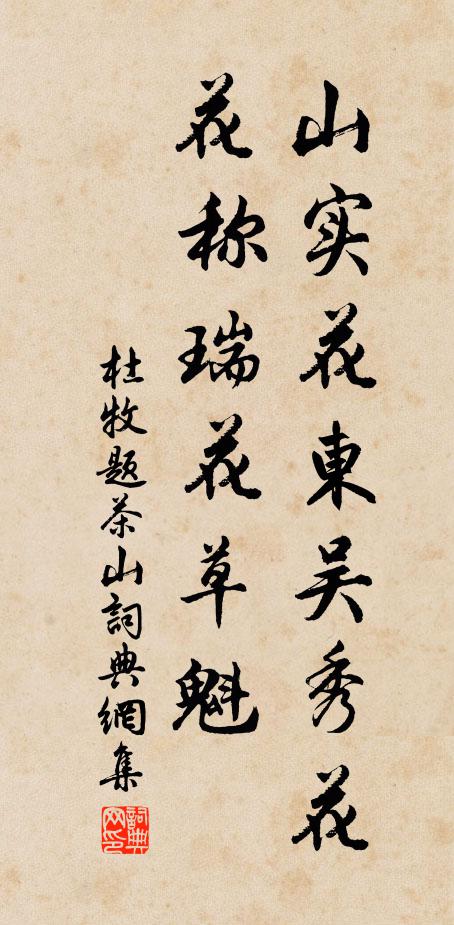 山实花東吴秀花
花称瑞花草魁
杜牧题茶山詞典網集
詞典网印